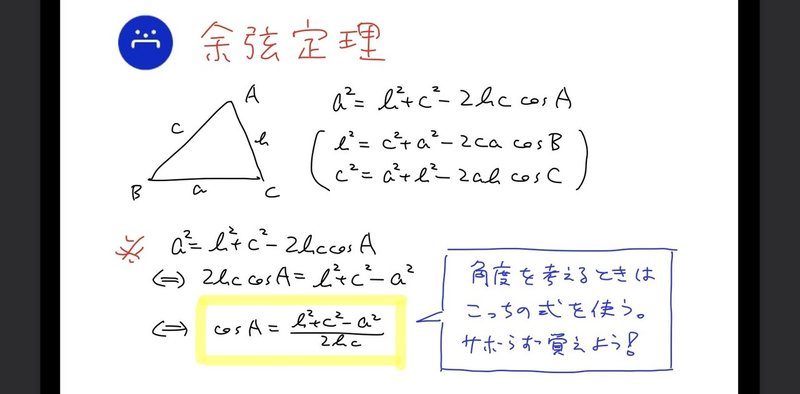 余弦定理
A
c
b
B
a
C
a²=b²+c²-2bc cosA
b²=c²+a²-2ca cosB
c²=a²+b²-2ab cosC
※ a²=b²+c²-2bccosA
⇔ 2bc cosA=b²+c²-a²
⇔ cosA=(b²+c²-a²)/2bc
角度を考えるときは
こっちの式を使う。
サボらず覚えよう!